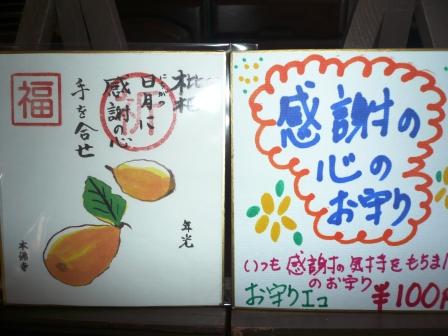 福
枇杷
日月に
にちがつ
感謝の心
手を合せ
年光
本佛寺
感謝の
心の
お守り
いつも感謝の気持をもちま
のお守り
お守りエコ ¥100円